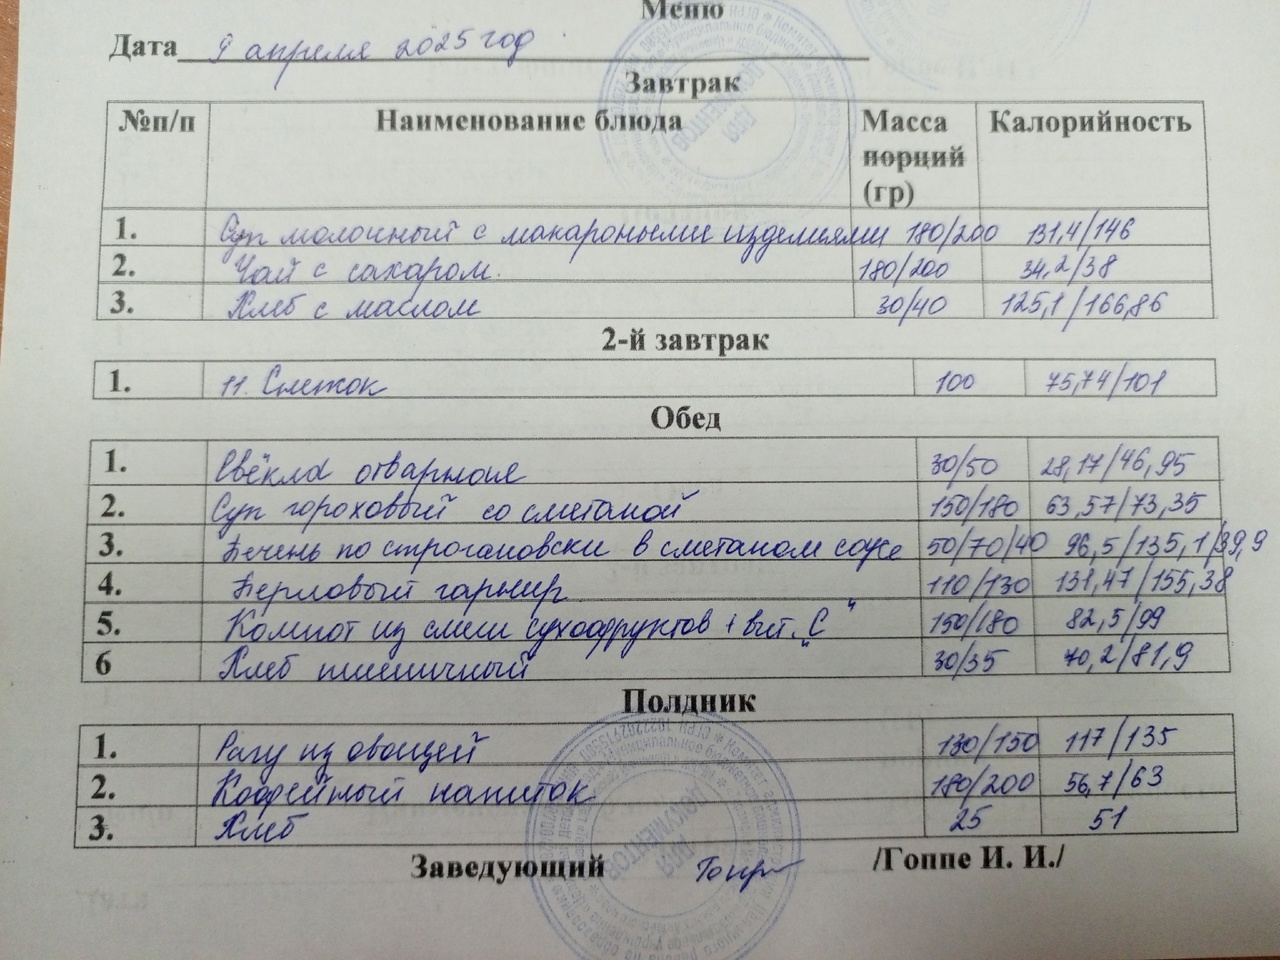 Меню
Дата 9 апреля 2025 год
Завтрак
№п/п Наименование блюда Масса порций (гр) Калорийность
1. Суп молочный с макароными изделиями 180/200 131,4/146
2. Чай с сахаром. 180/200 34,2/38
3. Хлеб с маслом 30/40 125,1/166,86
2-й завтрак
1. 11. Снежок 100 75,74/101
Обед
1. Свёкла отварная 30/50 28,17/46,95
2. Суп гороховый со сметаной 150/180 63,57/73,35
3. Печень по строгановски в сметаном соусе 50/70/40 96,5/135,1/39,9
4. Перловый гарнир 110/130 131,47/155,38
5. Компот из смеси сухофруктов + вит. „С" 150/180 82,5/99
6 Хлеб пшеничный 30/35 70,2/81,9
Полдник
1. Рагу из овощей 130/150 117/135
2. Кофейный напиток 180/200 56,7/63
3. Хлеб 25 51
Заведующий /Гоппе И. И./
ДЛЯ ДОКУМЕНТОВ